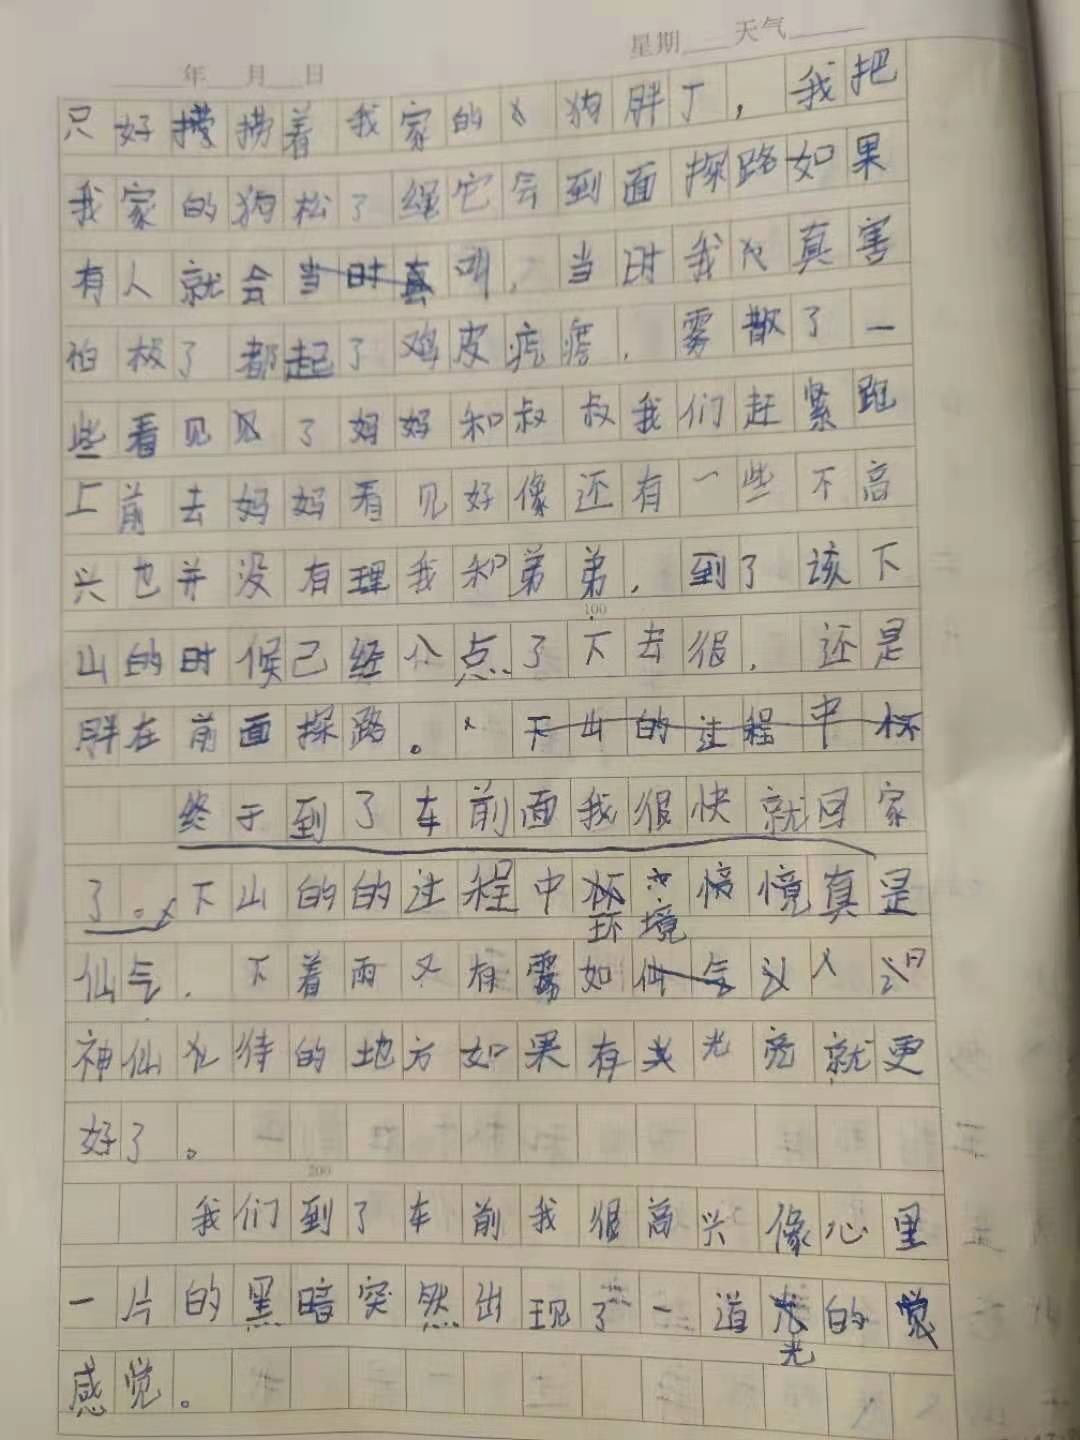 星期 天气
年 月 日
只好捞着我家的狗胖丁，我把
我家的狗松了绳它会到面探路如果
有人就会当时真叫，当时我真害
怕极了都起了鸡皮疙瘩，雾散了一
些看见见了妈妈和叔叔我们赶紧跑
上前去妈妈看见好像还有一些不高
兴也并没有理我和弟弟，到了该下
100
山的时候已经八点了下去很，还是
胖在前面探路。下山的过程中杯
终于到了车前面我很快就回家
了。下山的的过程中环境真是
仙气，下着雨又有雾如仙气以人
神仙待的地方如果有光亮就更
好了。
200
我们到了车前我很高兴像心里
一片的黑暗突然出现了一道光的觉
感觉。